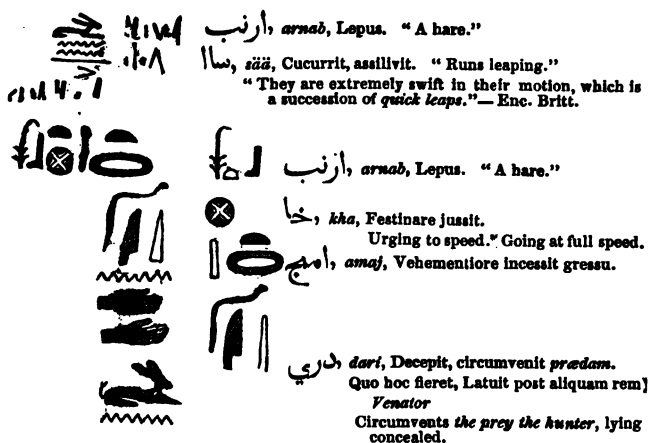 ارنب, arnab, Lepus. “A hare.”
ساا, sää, Cucurrit, assilivit. “Runs leaping.”
“They are extremely swift in their motion, which is
a succession of quick leaps.”— Enc. Britt.
ازنب, arnab, Lepus. “A hare.”
خا, kha, Festinare jussit.
Urging to speed.” Going at full speed.
امج, amaj, Vehementiore incessit gressu.
دري, dari, Decepit, circumvenit prædam.
Quo hoc fieret, Latuit post aliquam rem]
Venator
Circumvents the prey the hunter, lying
concealed.